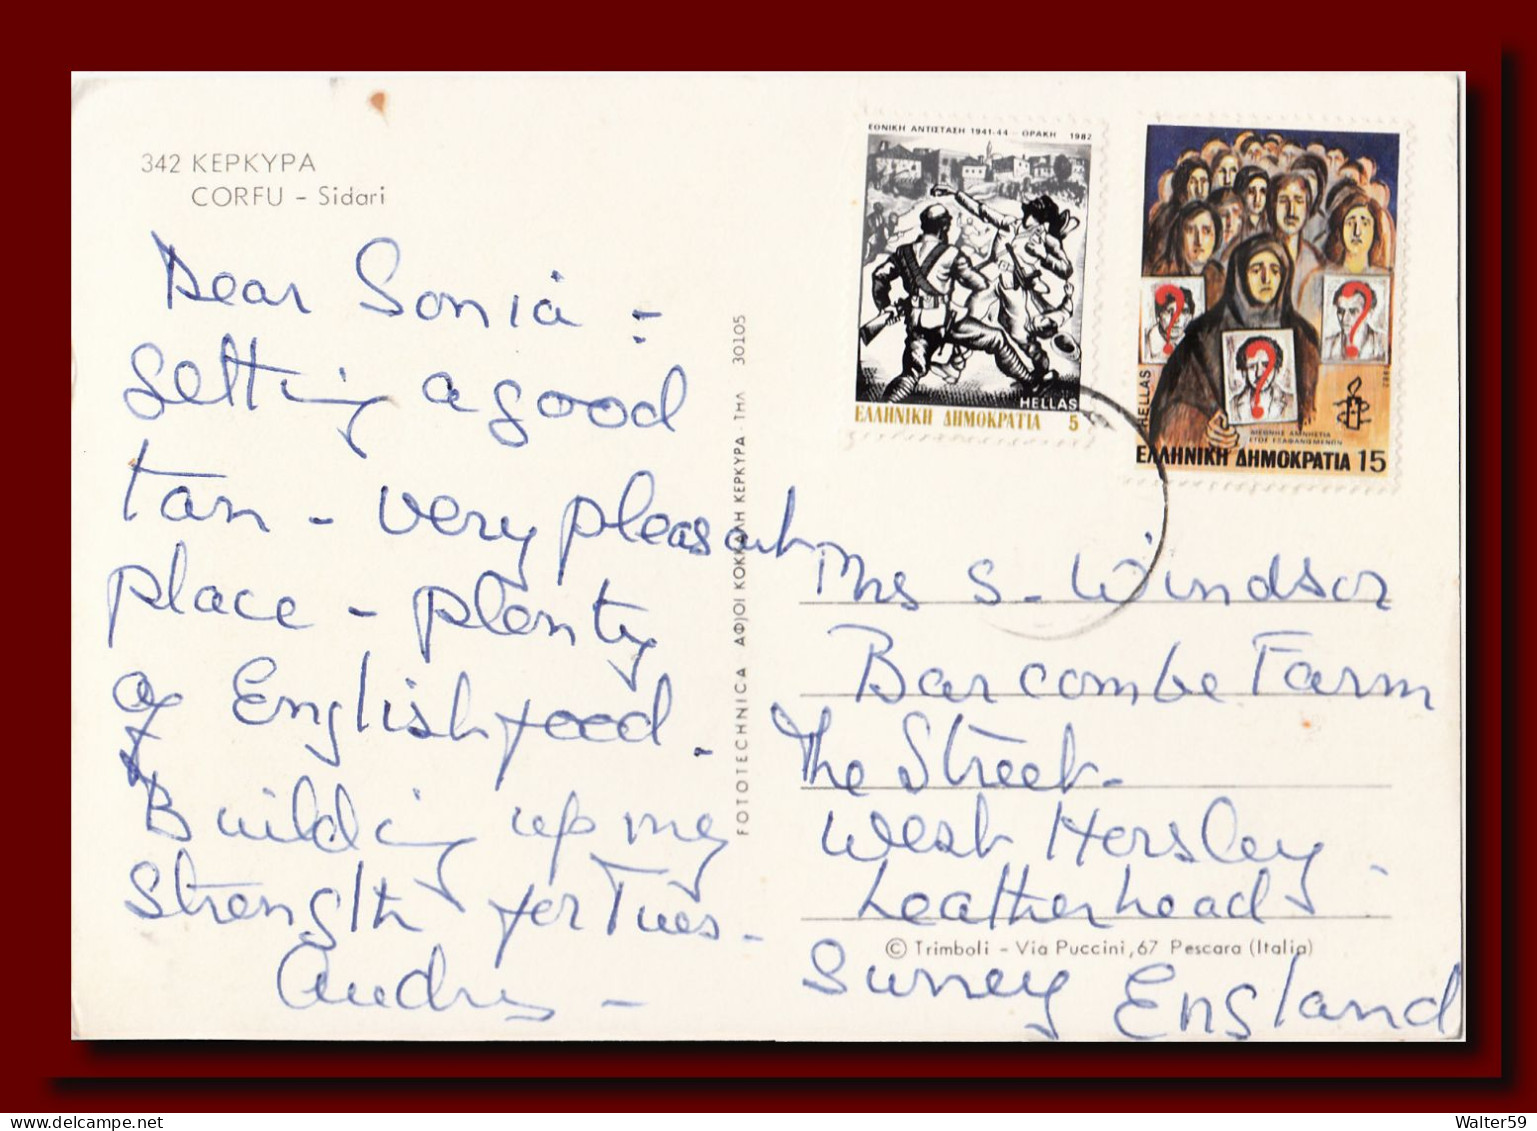 342 ΚΕΡΚΥΡΑ
CORFU – Sidari
Dear Sonia -
Getting a good
tan - very pleasant
place - plenty
of English food.
Building up my
strength for Tues -
Audrey -
FOTOTECHNICA ΑΦΙΟΙ ΚΟΚΚΑΛΗ ΚΕΡΚΥΡΑ · ΤΗΛ 30105
ΕΘΝΙΚΗ ΑΝΤΙΣΤΑΣΗ 1941-44 – ΘΡΑΚΗ 1982
HELLAS
ΕΛΛΗΝΙΚΗ ΔΗΜΟΚΡΑΤΙΑ 5
HELLAS
1982
ΔΙΕΘΝΗΣ ΑΜΝΗΣΤΙΑ
ΕΤΟΣ ΕΞΑΦΑΝΙΣΜΕΝΩΝ
ΕΛΛΗΝΙΚΗ ΔΗΜΟΚΡΑΤΙΑ 15
Mrs S. Windsor
Barcombe Farm
The Street -
West Horsley -
Leatherhead
© Trimboli – Via Puccini, 67 Pescara (Italia)
Surrey England
Walter59